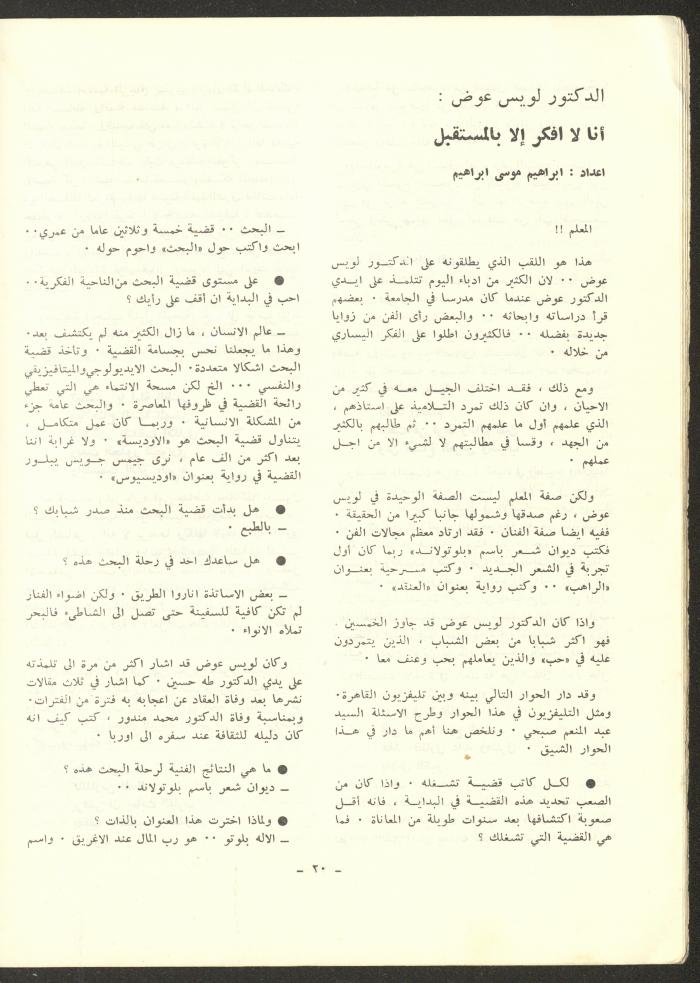 الدكتور لويس عوض :
أنا لا افكر إلا بالمستقبل
اعداد : ابراهيم موسى ابراهيم
المعلم !!
هذا هو اللقب الذي يطلقونه على الدكتــور لويس
عوض ٠٠ لان الكثير من ادباء اليوم تتلمـذ على ايـدي
الدكتور عوض عندما كان مدرسا في الجامعة ٠ بعضهم
قرأ دراساته وابحاثه ٠٠ والبعض رأى الفن من زوايا
جديدة بفضله ٠٠ فالكثيرون اطلوا على الفكر اليساري
من خلاله ٠
ومع ذلك ، فقـد اختلف الجيـل معـه في كثير من
الاحيان ، وان كان ذلك تمرد التـلاميذ على استاذهم ،
الذي علمهم أول ما علمهم التمرد ٠٠ ثم طالبهم بالكثير
من الجهد ، وقسا في مطالبتهم لا لشيء الا من اجـل
عملهم ٠
ولكن صفة المعلم ليست الصفة الوحيدة في لويس
عوض ، رغم صدقها وشمولها جانبا كبيرا من الحقيقة ٠
ففيه ايضا صفة الفنان ٠ فقد ارتاد معظم مجالات الفن ٠
فكتب ديوان شـعر باسم «بلوتولاند» ربما كان أول
تجربة في الشعر الجـديد ٠ وكتب مسـرحية بعنــوان
«الراهب» ٠٠ وكتب رواية بعنوان «العنقد» ٠
واذا كان الدكتور لويس عوض قد جاوز الخمسين ٠
فهو اكثر شبابا من بعض الشباب ، الذين يتمردون
عليه في «حب» والذين يعاملهم بحب وعنف معا ٠
وقد دار الحوار التالي بينه وبين تليفزيون القاهرة٠
ومثل التليفزيون في هذا الحوار وطرح الاسئلة السيد
عبد المنعم صبحي ٠ ونلخص هنا أهم ما دار في هـذا
الحوار الشيق ٠
● لكـل كاتب قضيـة تشـغله ٠ واذا كان من
الصعب تحديد هذه القضيـة في البدايـة ، فانه أقـل
صعوبة اكتشافها بعد سنوات طويلة من المعاناة ٠ فما
هي القضية التي تشغلك ؟
ـ البحث ٠٠ قضية خمسة وثلاثين عاما من عمري٠٠
ابحث واكتب حول «البحث» واحوم حوله ٠
● على مستوى قضية البحث من الناحية الفكرية٠٠
احب في البداية ان اقف على رأيك ؟
ـ عالم الانسان ، ما زال الكثير منه لم يكتشف بعد٠
وهذا ما يجعلنا نحس بجسامة القضية ٠ وتأخذ قضية
البحث اشكالا متعددة٠ البحث الايديولوجي والميتافيزيقي
والنفسي ٠٠٠ الخ لكن مسحة الانتماء هي التي تعطي
رائحة القضية في ظروفها المعاصرة ٠ والبحث عامة جزء
من المشكلة الانسانية ٠ وربمـا كان عمل متكامـل ،
يتناول قضية البحث هو «الاوديسة» ٠ ولا غرابة اننا
بعد اكثر من الف عام ، نرى جيمس جـويس يبلـور
القضية في رواية بعنوان «اوديسيوس» ٠
● هل بدأت قضية البحث منذ صدر شبابك ؟
ـ بالطبع ٠
● هل ساعدك احد في رحلة البحث هذه ؟
ـ بعض الاساتذة اناروا الطريق ٠ ولكن اضواء الفنار
لم تكن كافية للسفينة حتى تصل الى الشاطىء فالبحر
تملأه الانواء ٠
وكان لويس عوض قد اشار اكثر من مرة الى تلمذته
على يدي الدكتور طه حسين ٠ كما اشار في ثلاث مقالات
نشرها بعد وفاة العقاد عن اعجابه به فترة من الفترات٠
وبمناسبة وفاة الدكتور محمد مندور ، كتب كيف انه
كان دليله للثقافة عند سفره الى اوربا ٠
● ما هي النتائج الفنية لرحلة البحث هذه ؟
ـ ديوان شعر باسم بلوتولاند ٠٠
● ولماذا اخترت هذا العنوان بالذات ؟
ـ الاله بلوتو ٠٠ هو رب المال عند الاغريق ٠ واسم
ـ ٢٠ ـ